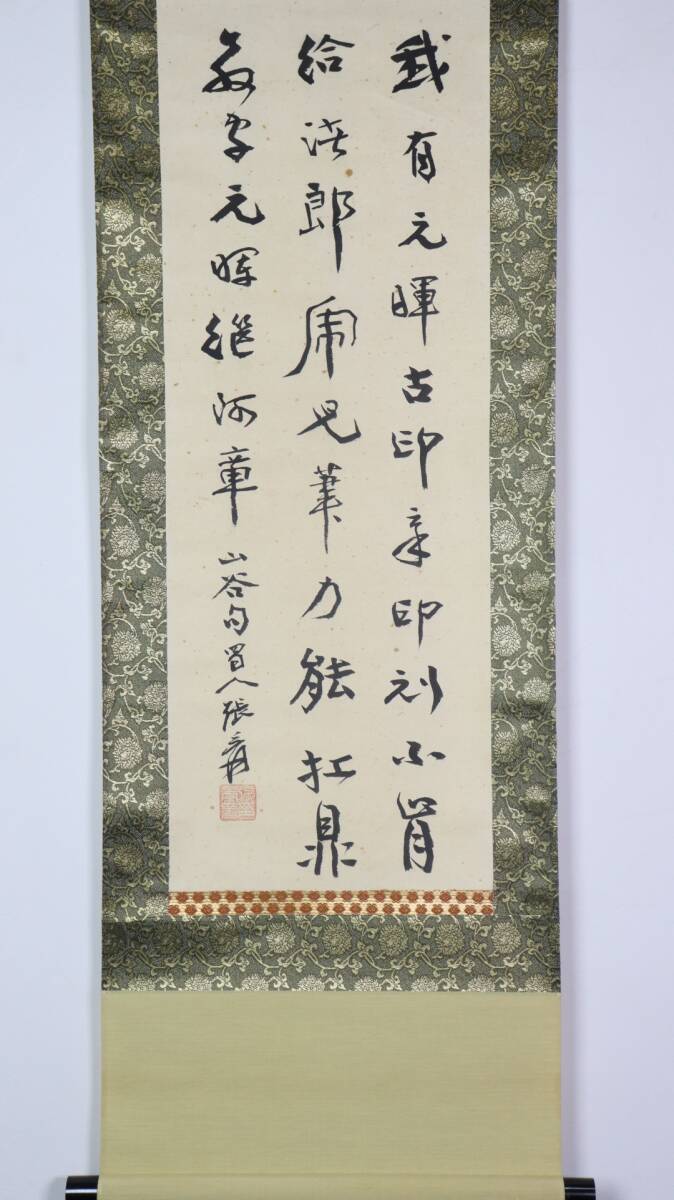 我有元暉古印章印刓不肯
給諸郎虎兒筆力能扛鼎
教字元暉繼阿章 山谷句 蜀人張爰